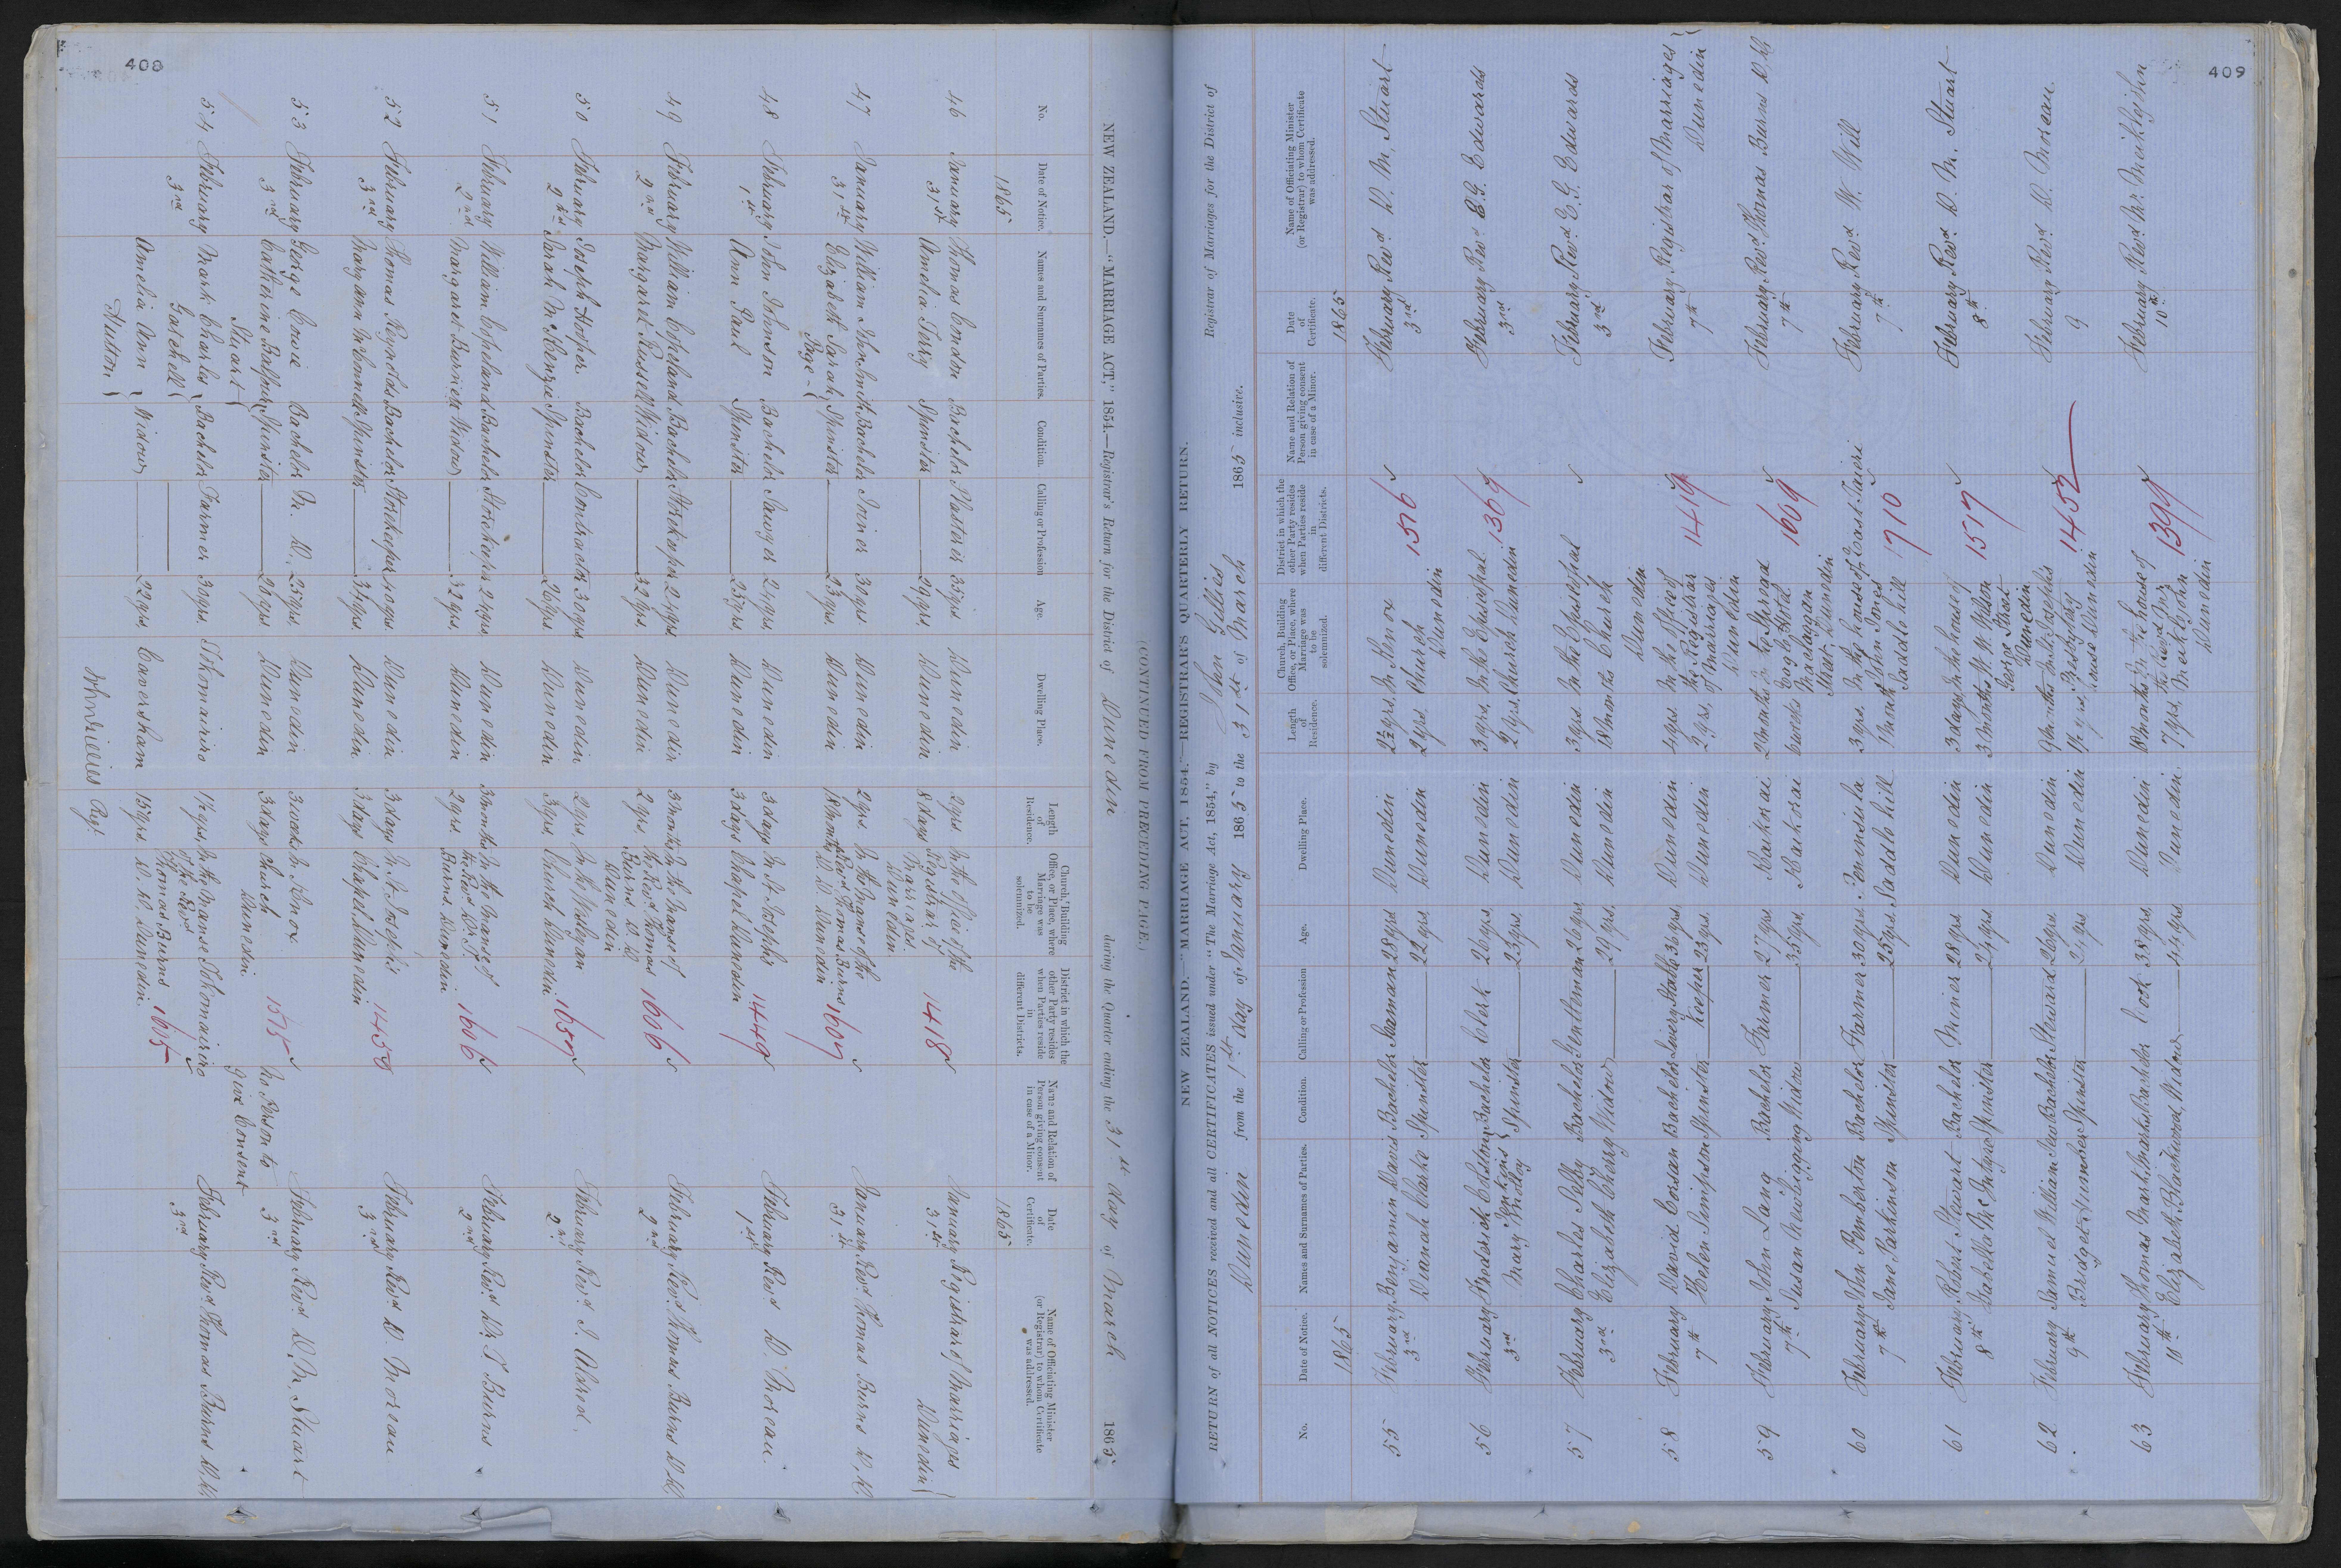 408
NEW ZEALAND.—"MARRIAGE ACT," 1854.—Registrar's Return for the District of Dunedin during the Quarter ending the 31st day of March 1865
(CONTINUED FROM PRECEDING PAGE.)
No. Date of Notice. Names and Surnames of Parties. Condition. Calling or Profession Age. Dwelling Place. Length of Residence. Church, Building Office, or Place, where Marriage was to be solemnized. District in which the other Party resides when Parties reside in different Districts. Name and Relation of Person giving consent in case of a Minor. Date of Certificate. Name of Officiating Minister (or Registrar) to whom Certificate was addressed.
1865 1865
46 January Thomas Condon Bachelor Plasterer 35 yrs. Dunedin 2 yrs. In the Office of the January Registrar of Marriages
31st Amelia Terry Spinster 29 yrs. Dunedin 8 days Registrar of Marriages Dunedin 1418 31st Dunedin
47 January William John Smith Bachelor Joiner 30 yrs. Dunedin 2 yrs. In the Manse of the January Revd. Thomas Burns D.D.
31st Elizabeth Sarah Page Spinster 23 yrs. Dunedin 18 months Revd. Thomas Burns D.D. Dunedin 1607 31st
48 February John Johnson Bachelor Sawyer 24 yrs. Dunedin 3 days In St. Joseph's February Revd. D. Moreau.
1st Ann Paul Spinster 25 yrs. Dunedin 3 days Chapel Dunedin 1449 1st
49 February William Copeland Bachelor Storekeeper 24 yrs. Dunedin 3 months In the Manse of February Revd. Thomas Burns D.D.
2nd Margaret Russell Widow 32 yrs. Dunedin 2 yrs. the Revd. Thomas Burns D.D. Dunedin 1606 2nd
50 February Joseph Hooper Bachelor Contractor 30 yrs. Dunedin 2 yrs. In the Wesleyan February Revd. I. Aldred.
2nd Sarah McKenzie Spinster 26 yrs. Dunedin 3 yrs. Church Dunedin 1657 2nd
51 February William Copeland Bachelor Storekeeper 24 yrs. Dunedin 3 months In the Manse of February Revd. Dr. T Burns
2nd Margaret Burnien Widow 32 yrs. Dunedin 2 yrs. the Revd. Dr. T Burns. Dunedin 1606 2nd
52 February Thomas Reynolds Bachelor Storekeeper 30 yrs. Dunedin 3 days In St. Joseph's February Revd. D. Moreau
3rd Margann McConnell Spinster 34 yrs. Dunedin 3 days Chapel, Dunedin 1450 3rd
53 February George Cowie Bachelor M. D. 25 yrs. Dunedin 3 weeks In Knox February Revd. D. M. Stuart
3rd Catherine Balfour Stuart Spinster 20 yrs. Dunedin 3 days Church Dunedin 1515 No Person to give Consent 3rd
54 February Mark Charles Gatchell Bachelor Farmer 30 yrs. Tokomairiro 1½ yrs. In the Manse of the Revd. Tokomairiro February Revd. Thomas Burns D.D.
3rd Amelia Ann Huston Widow 22 yrs. Caversham 15 yrs. Thomas Burns D.D. Dunedin. 1605 3rd
John Gillies Regr.
409
NEW ZEALAND.—"MARRIAGE ACT, 1854."—REGISTRAR'S QUARTERLY RETURN.
RETURN of all NOTICES received and all CERTIFICATES issued under "The Marriage Act, 1854," by John Gillies Registrar of Marriages for the District of
Dunedin from the 1st day of January 1865 to the 31st of March 1865 inclusive.
No. Date of Notice. Names and Surnames of Parties. Condition. Calling or Profession Age. Dwelling Place. Length of Residence. Church, Building Office, or Place, where Marriage was to be solemnized. District in which the other Party resides when Parties reside in different Districts. Name and Relation of Person giving consent in case of a Minor. Date of Certificate. Name of Officiating Minister (or Registrar) to whom Certificate was addressed.
1865 1865
55 February Benjamin Davis Bachelor Seaman 28 yrs. Dunedin 2½ yrs. In Knox February Revd. D. M. Stuart
3rd Dianah Clarke Spinster 22 yrs. Dunedin 2 yrs. Church Dunedin 1516 3rd
56 February Frederick Colston Bachelor Clerk 26 yrs. Dunedin 3 yrs. In the Episcopal February Revd. E. G. Edwards
3rd Mary Jenkins Molloy Spinster 23 yrs. Dunedin 2 yrs. Church Dunedin 1369 3rd
57 February Charles Selby Bachelor Gentleman 26 yrs. Dunedin 3 yrs. In the Episcopal February Revd. E. G. Edwards
3rd Elizabeth Cherry Widow 29 yrs. Dunedin 18 months Church Dunedin 3rd
58 February David Corsan Bachelor Livery Stable Keeper 36 yrs. Dunedin 4 yrs. In the Office of February Registrar of Marriages
7th Helen Simpson Spinster 23 yrs. Dunedin 2 yrs. the Registrar of Marriages Dunedin 1419 7th Dunedin
59 February John Lang Bachelor Farmer 27 yrs. Kaikorai 2 months In the Spread February Revd. Thomas Burns D.D.
7th Susan Newbigging Widow 35 yrs. Kaikorai 6 weeks Eagle Hotel Maclaggan Street Dunedin 1609 7th
60 February John Pemberton Bachelor Farmer 30 yrs. Peninsula 3 yrs. In the house of East Taieri February Revd. W. Will
7th Jane Parkinson Spinster 25 yrs. Saddle hill 1 month John Jones Saddle hill 1710 7th
61 February Robert Stewart Bachelor Miner 28 yrs. Dunedin 3 days In the house of February Revd. D. M. Stuart
8th Isabella McIntyre Spinster 24 yrs. Dunedin 3 months W. W. Wilson George Street Dunedin 1517 8th
62 February Samuel William New Bachelor Steward 26 yrs. Dunedin 9 months In St. Josephs February Revd. D. Moreau.
9th Bridget Spinster 24 yrs. Dunedin Presbytery house Dunedin 1452 9
63 February Thomas Mark Marks Bachelor Cook 38 yrs. Dunedin 18 months In the house of February Revd. Mr. Meiklejohn
10th Elizabeth Blackwood Widow 44 yrs. Dunedin. 7 yrs. the Revd. Mr. Meiklejohn Dunedin 1399 10th